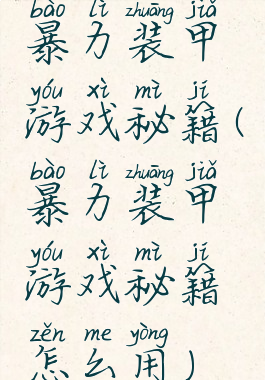 bào lì zhuāng jiǎ
暴力装甲
yóu xì mì jí
游戏秘籍(
bào lì zhuāng jiǎ
暴力装甲
yóu xì mì jí
游戏秘籍
zěn me yòng
怎么用)